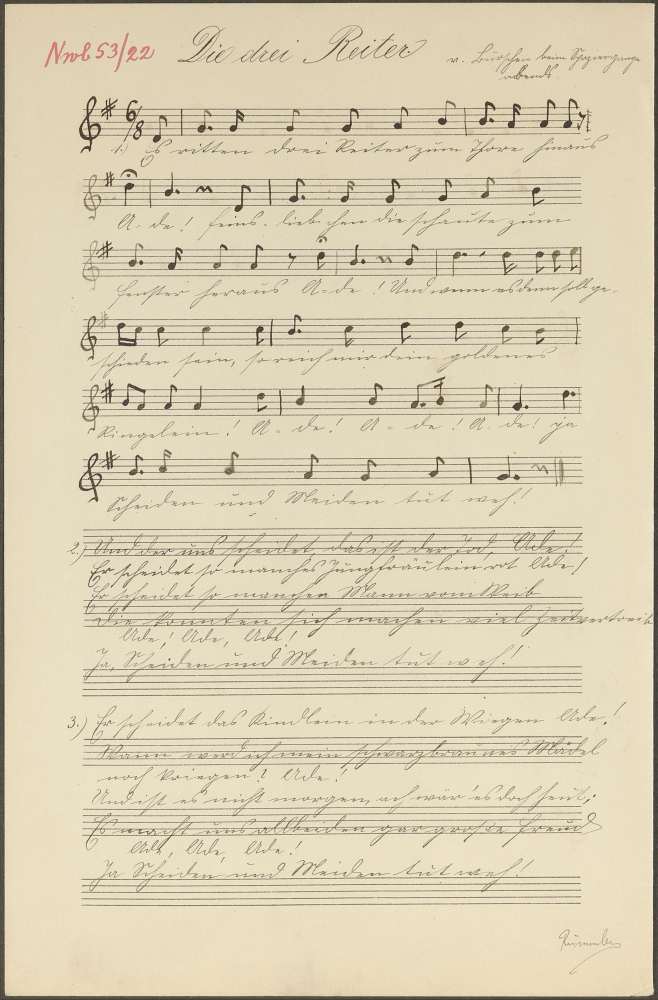 Nwb 53/22
Die drei Reiter
v. Burschen beim Spaziergange
abends
1.) Es ritten drei Reiter zum Thore hinaus
A- de! feins- liebchen die schaute zum
fenster heraus A-de! Und wenn es denn soll ge-
schieden sein, so reich mir dein goldenes
Ringelein! A- de! A- de! A- de! ja
Scheiden und Meiden tut weh!
2.) Und der uns scheidet, das ist der Tod, Ade!
Er scheidet so manches Jungfräulein rot Ade!
Er scheidet so manchen Mann vom Weib
die konnten sich machen viel Zeitvertreib
Ade! Ade, Ade!
Ja, Scheiden und Meiden tut weh!
3.) Er scheidet das Kindlein in der Wiegen Ade!
Wann werd ich mein schwarzbraunes Mädel
noch kriegen? Ade!
Und ist es nicht morgen, ach wär' es doch heut;
Es macht uns allbeiden gar große Freud
Ade, Ade, Ade!
Ja Scheiden und Meiden tut weh!